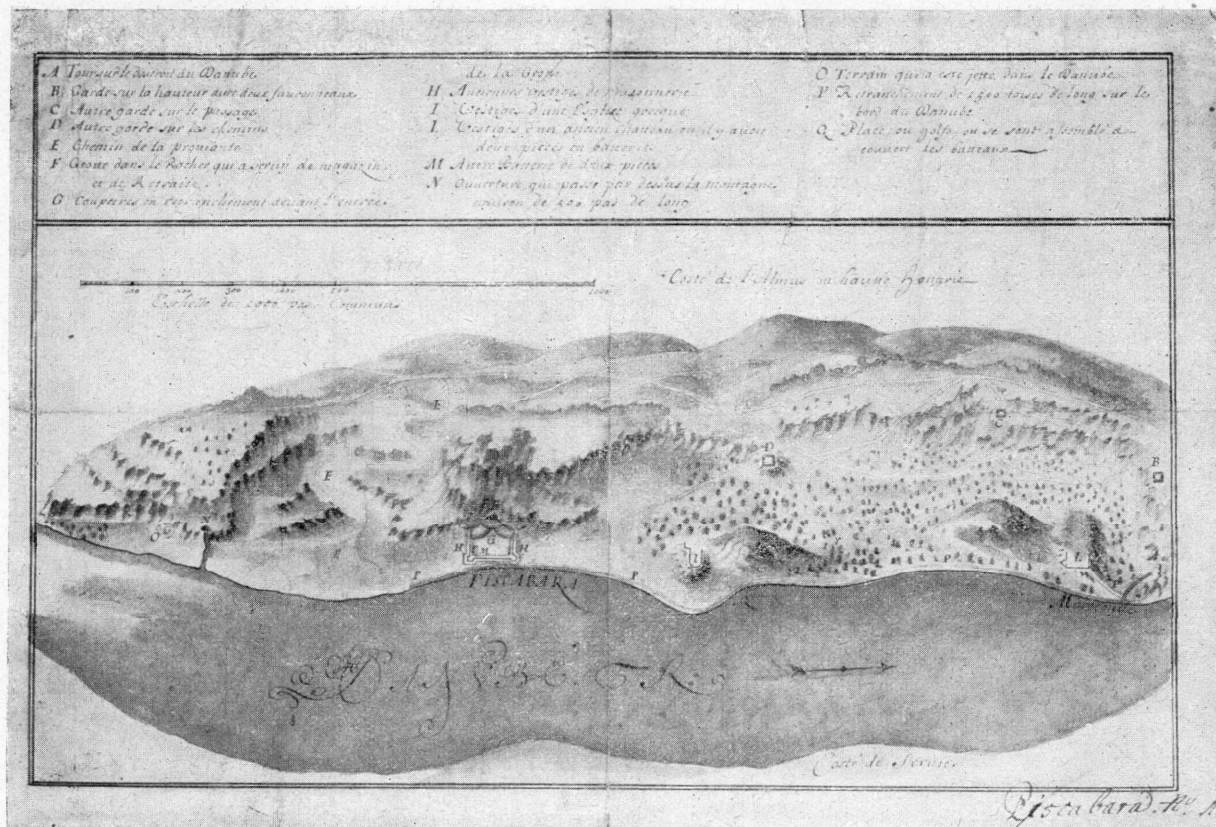 A Tour sur le destroit du Danube.
B Garde sur la hauteur avec deux fauconneaux.
C Autre garde sur le passage
D Autre garde sur les chemins
E Chemin de la prouiante
F Grotte dans le Rocher qui a serui de magazin
et de Retraite.
G Coupeures en retranchement deuant l'entrée
de la Grotte
H Anciennes vestiges de maçonnerie
I Vestiges d'une Eglise grecque
L Vestiges d'un ancien chateau ou il y auoit
deux pieces en batterie
M Autre Batterie de deux pieces
N Ouverture qui passe par dessus la montagne
enuiron de 500 pas de long
O Terrain qui a esté jetté dans le Danube
P Retranchement de 2500 toises de long sur le
bord du Danube
Q Place, ou golfe, ou se sont assemblé
couuert les bateaux
300 400 500 1000
Eschelle de 1000 pas Communs
Costé de l'Almas en haute Hongrie
E
C
D
B
E
E
G
H H H
I
L
P
PISCABARA
P
P
M
DANUBE
Costé de Seruie
Piscabara